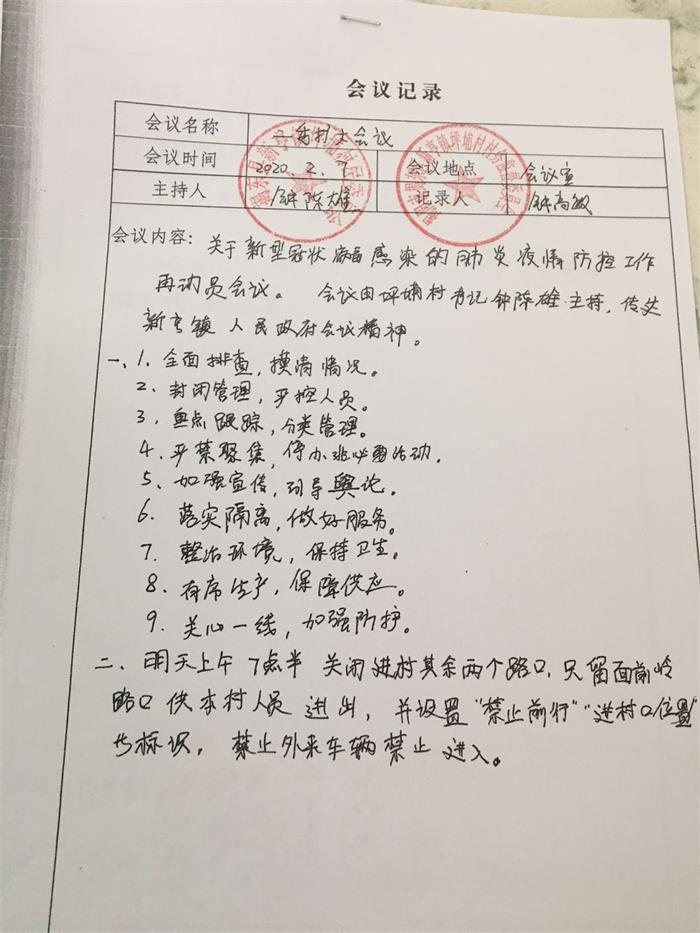 会议记录
会议名称 村大会议
会议时间 2020.2.7 会议地点 会议室
主持人 钟陈雄 记录人 钟高敏
会议内容：关于新型冠状病毒感染的肺炎疫情防控工作
再动员会议。会议由坪埔村书记钟陈雄主持，传达
新亨镇人民政府会议精神。
一、1、全面排查，摸清情况。
2、封闭管理，严控人员。
3、重点跟踪，分类管理。
4、严禁聚集，停办非必要活动。
5、加强宣传，引导舆论。
6、落实隔离，做好服务。
7、整治环境，保持卫生。
8、有序生产，保障供应。
9、关心一线，加强防护。
二、明天上午7点半关闭进村其余两个路口，只留面前岭
路口供本村人员进出，并设置"禁止前行""进村口位置"
标识，禁止外来车辆禁止进入。